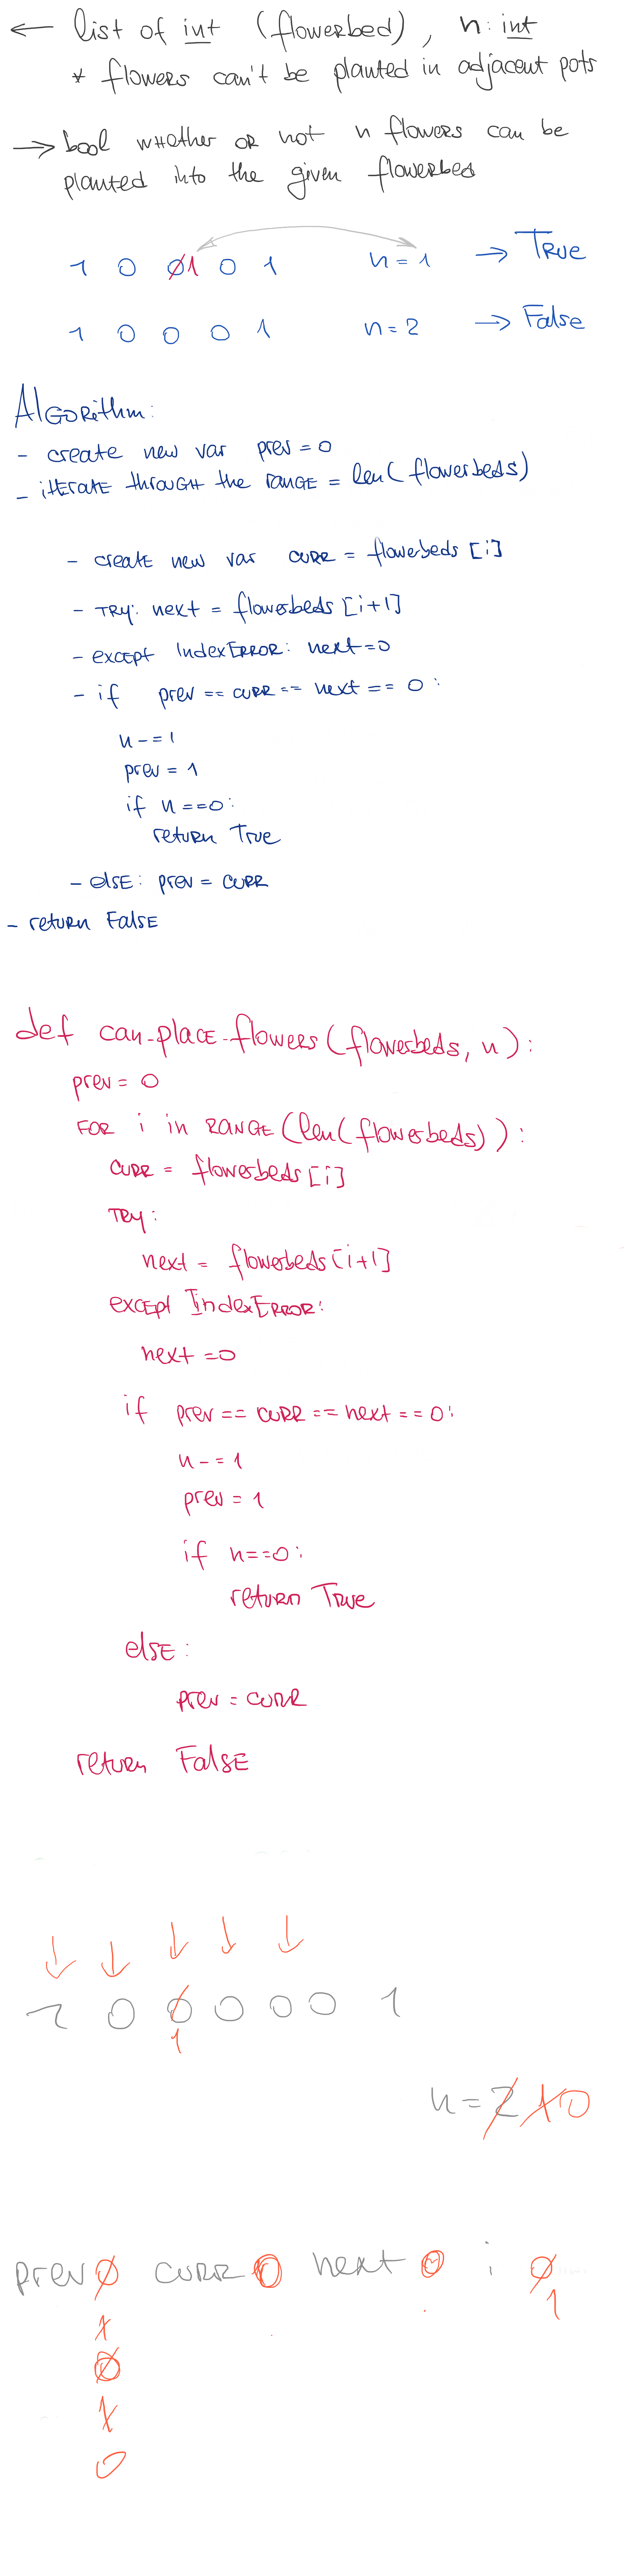 ← list of int (flowerbed), n: int
* flowers can't be planted in adjacent pots
→ bool whether or not n flowers can be
planted into the given flowerbed
1 0 0 1 0 1 n = 1 → True
1 0 0 0 1 n = 2 → False
Algorithm:
- create new var prev = 0
- iterate through the range = len(flowerbeds)
- create new var curr = flowerbeds [i]
- try: next = flowerbeds [i+1]
- except IndexError: next=0
- if prev == curr == next == 0:
n -= 1
prev = 1
if n ==0:
return True
- else: prev = curr
- return False
def can_place_flowers(flowerbeds, n):
prev = 0
for i in range(len(flowerbeds)):
curr = flowerbeds[i]
try:
next = flowerbeds[i+1]
except IndexError:
next =0
if prev == curr == next == 0:
n -= 1
prev = 1
if n==0:
return True
else:
prev = curr
return False
↓ ↓ ↓ ↓ ↓
1 0 0 0 0 0 1
1
n = 2 1 0
prev 0 curr 0 next 0 i 0
1 1
0
1
0